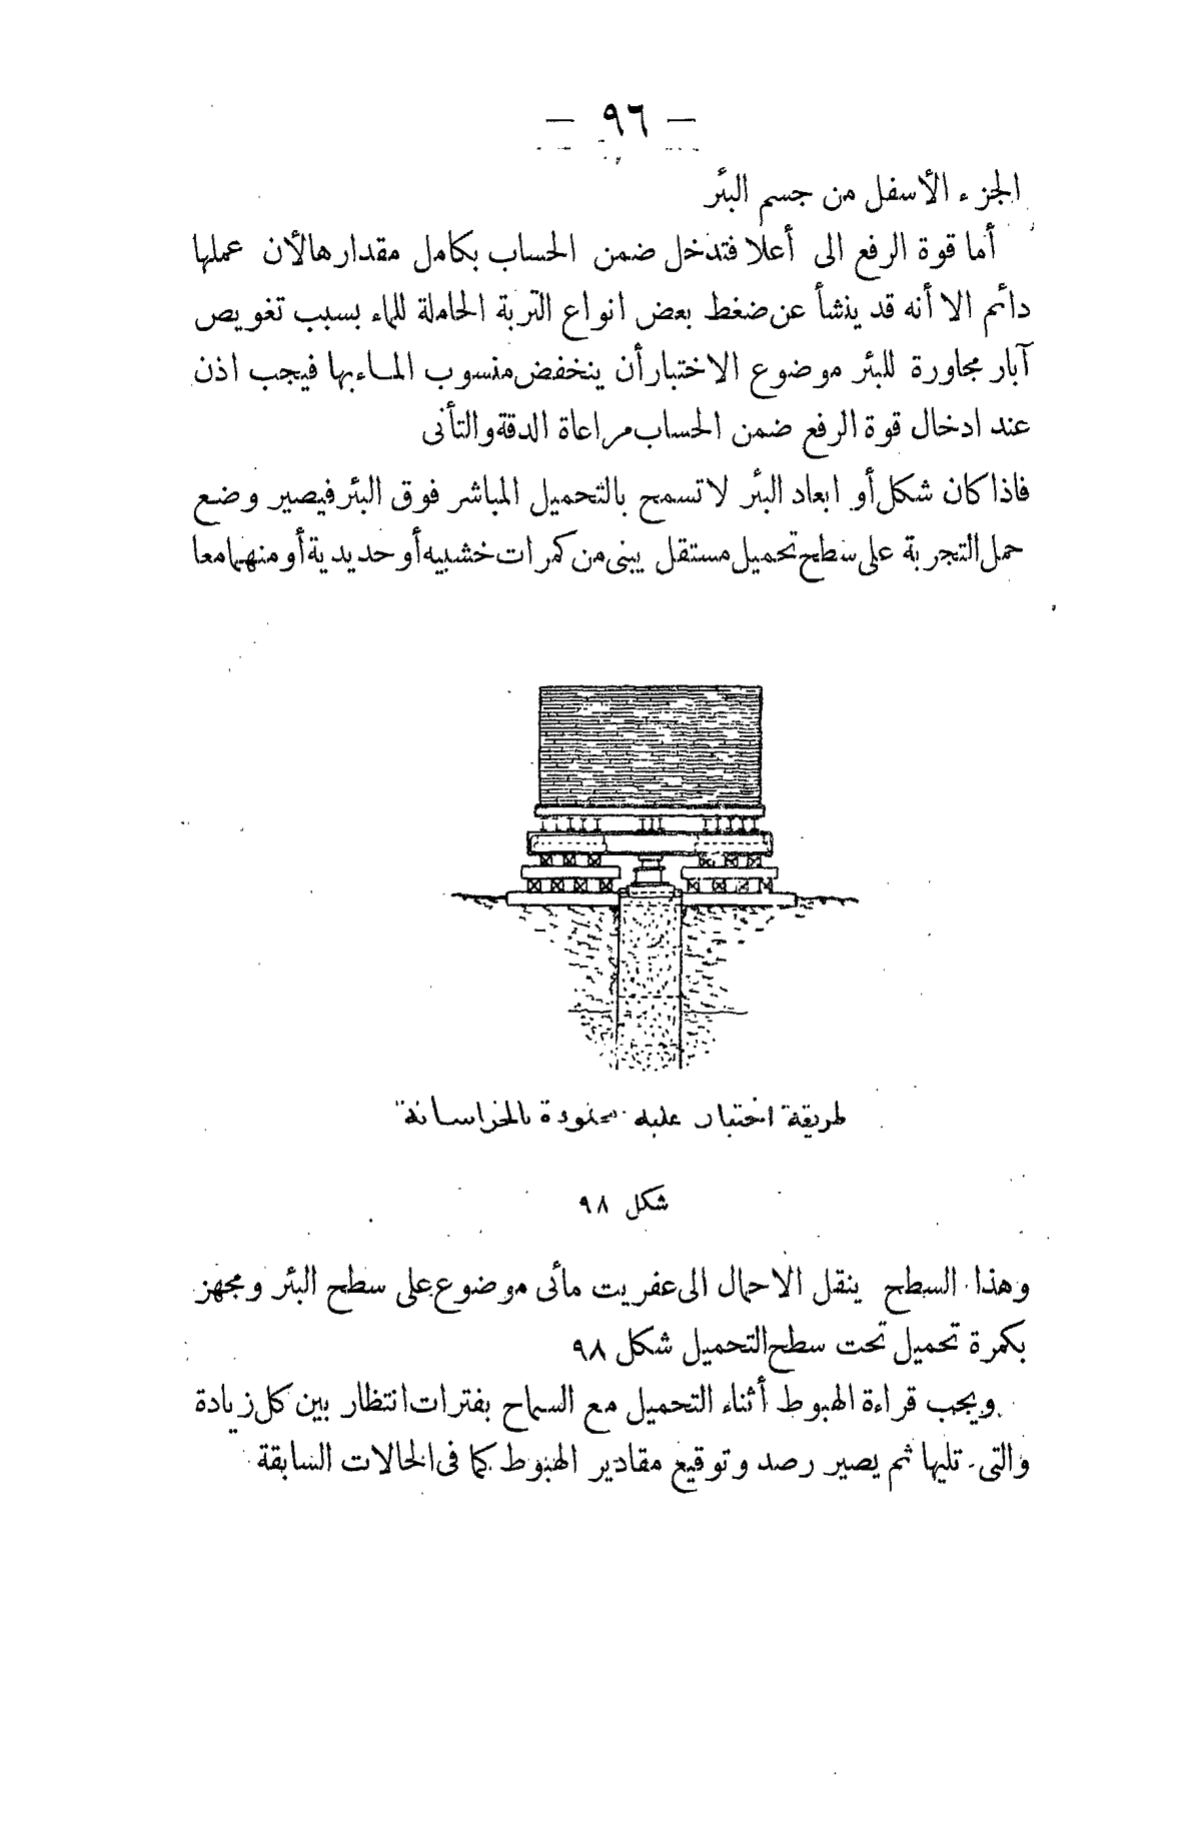 — ٩٦ —
الجزء الأسفل من جسم البئر
أما قوة الرفع الى أعلا فتدخل ضمن الحساب بكامل مقدارها لأن عملها
دائم الا أنه قد ينشأ عن ضغط بعض انواع التربة الحاملة للماء بسبب تغويص
آبار مجاورة للبئر موضوع الاختبار أن ينخفض منسوب الماء بها فيجب اذن
عند ادخال قوة الرفع ضمن الحساب مراعاة الدقة والتأنى
فاذا كان شكل أو ابعاد البئر لا تسمح بالتحميل المباشر فوق البئر فيصير وضع
حمل التجربة على سطح تحميل مستقل يبنى من كمرات خشبيه أو حديدية أو منهما معا
طريقة اختبار علبه محنودة بالخراسانة
شكل ٩٨
وهذا السطح ينقل الاحمال الى عفريت مائى موضوع على سطح البئر ومجهز
بكمرة تحميل تحت سطح التحميل شكل ٩٨
ويجب قراءة الهبوط أثناء التحميل مع السماح بفترات انتظار بين كل زيادة
والتى تليها ثم يصير رصد وتوقيع مقادير الهبوط كما فى الحالات السابقة